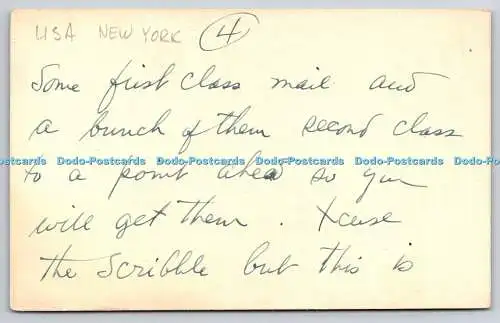 USA NEW YORK 4
Some first class mail and
a bunch of them second class
Dodo-Postcards Dodo-Postcards Dodo-Postcards Dodo-Postcards Dodo-Postcards
to a point ahead so you
will get them. Xcuse
the scribble but this is